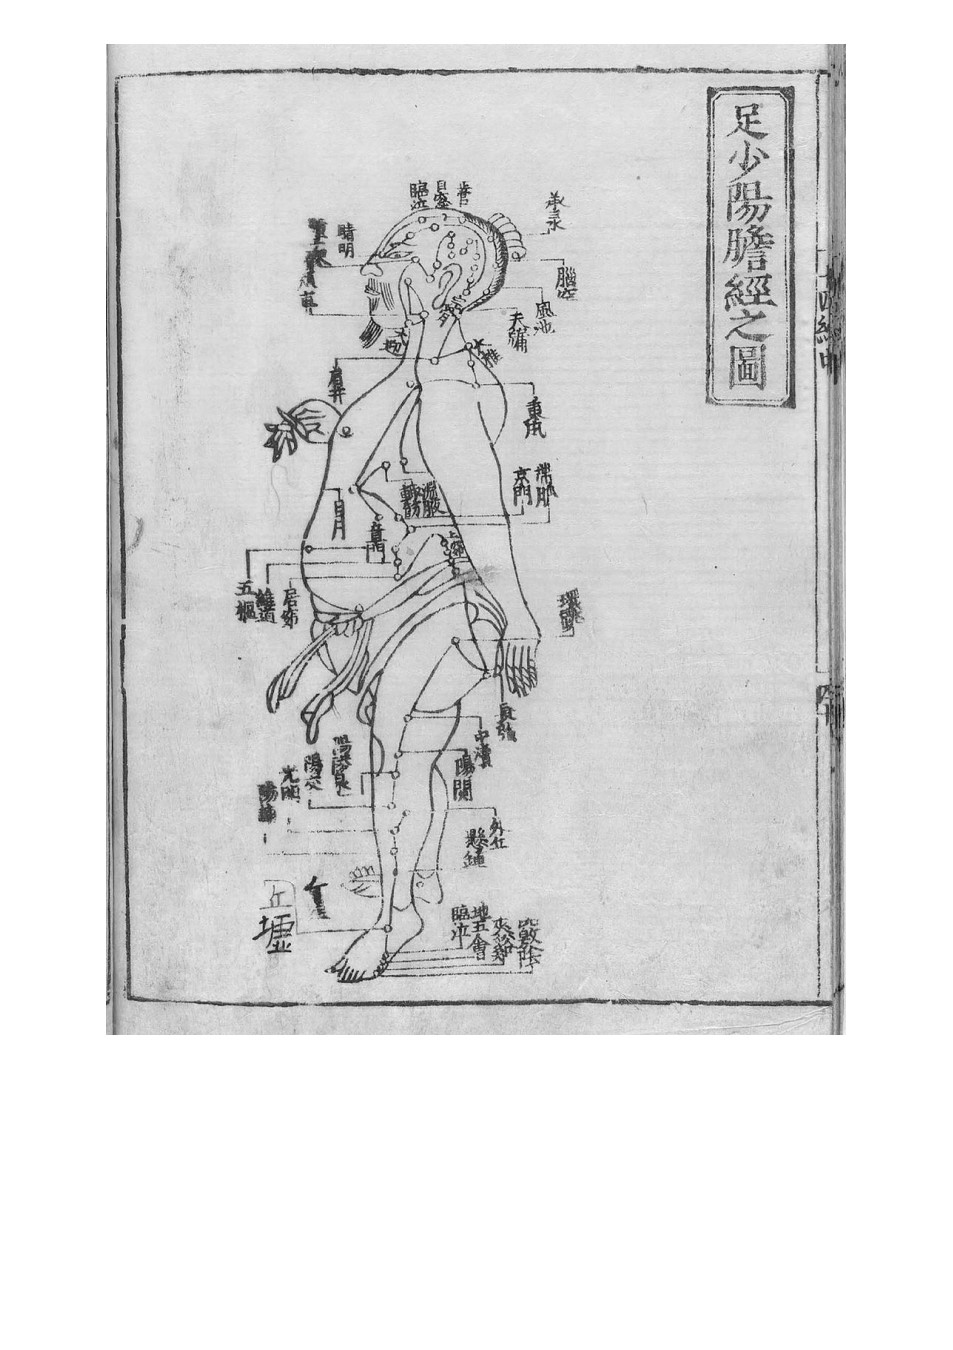 足少陽膽經之圖
承灵
營
目窗
臨泣
睛明
腦空
風池
天牖
大椎
肩井
秉風
帶脉
京門
淵腋
輒筋
日月
章門
上窌
居窌
維道
五樞
環跳
長強
中瀆
陽關
陽陵泉
陽交
光明
陽輔
外丘
懸鍾
丘
墟
臨泣
地五會
夾谿
竅陰